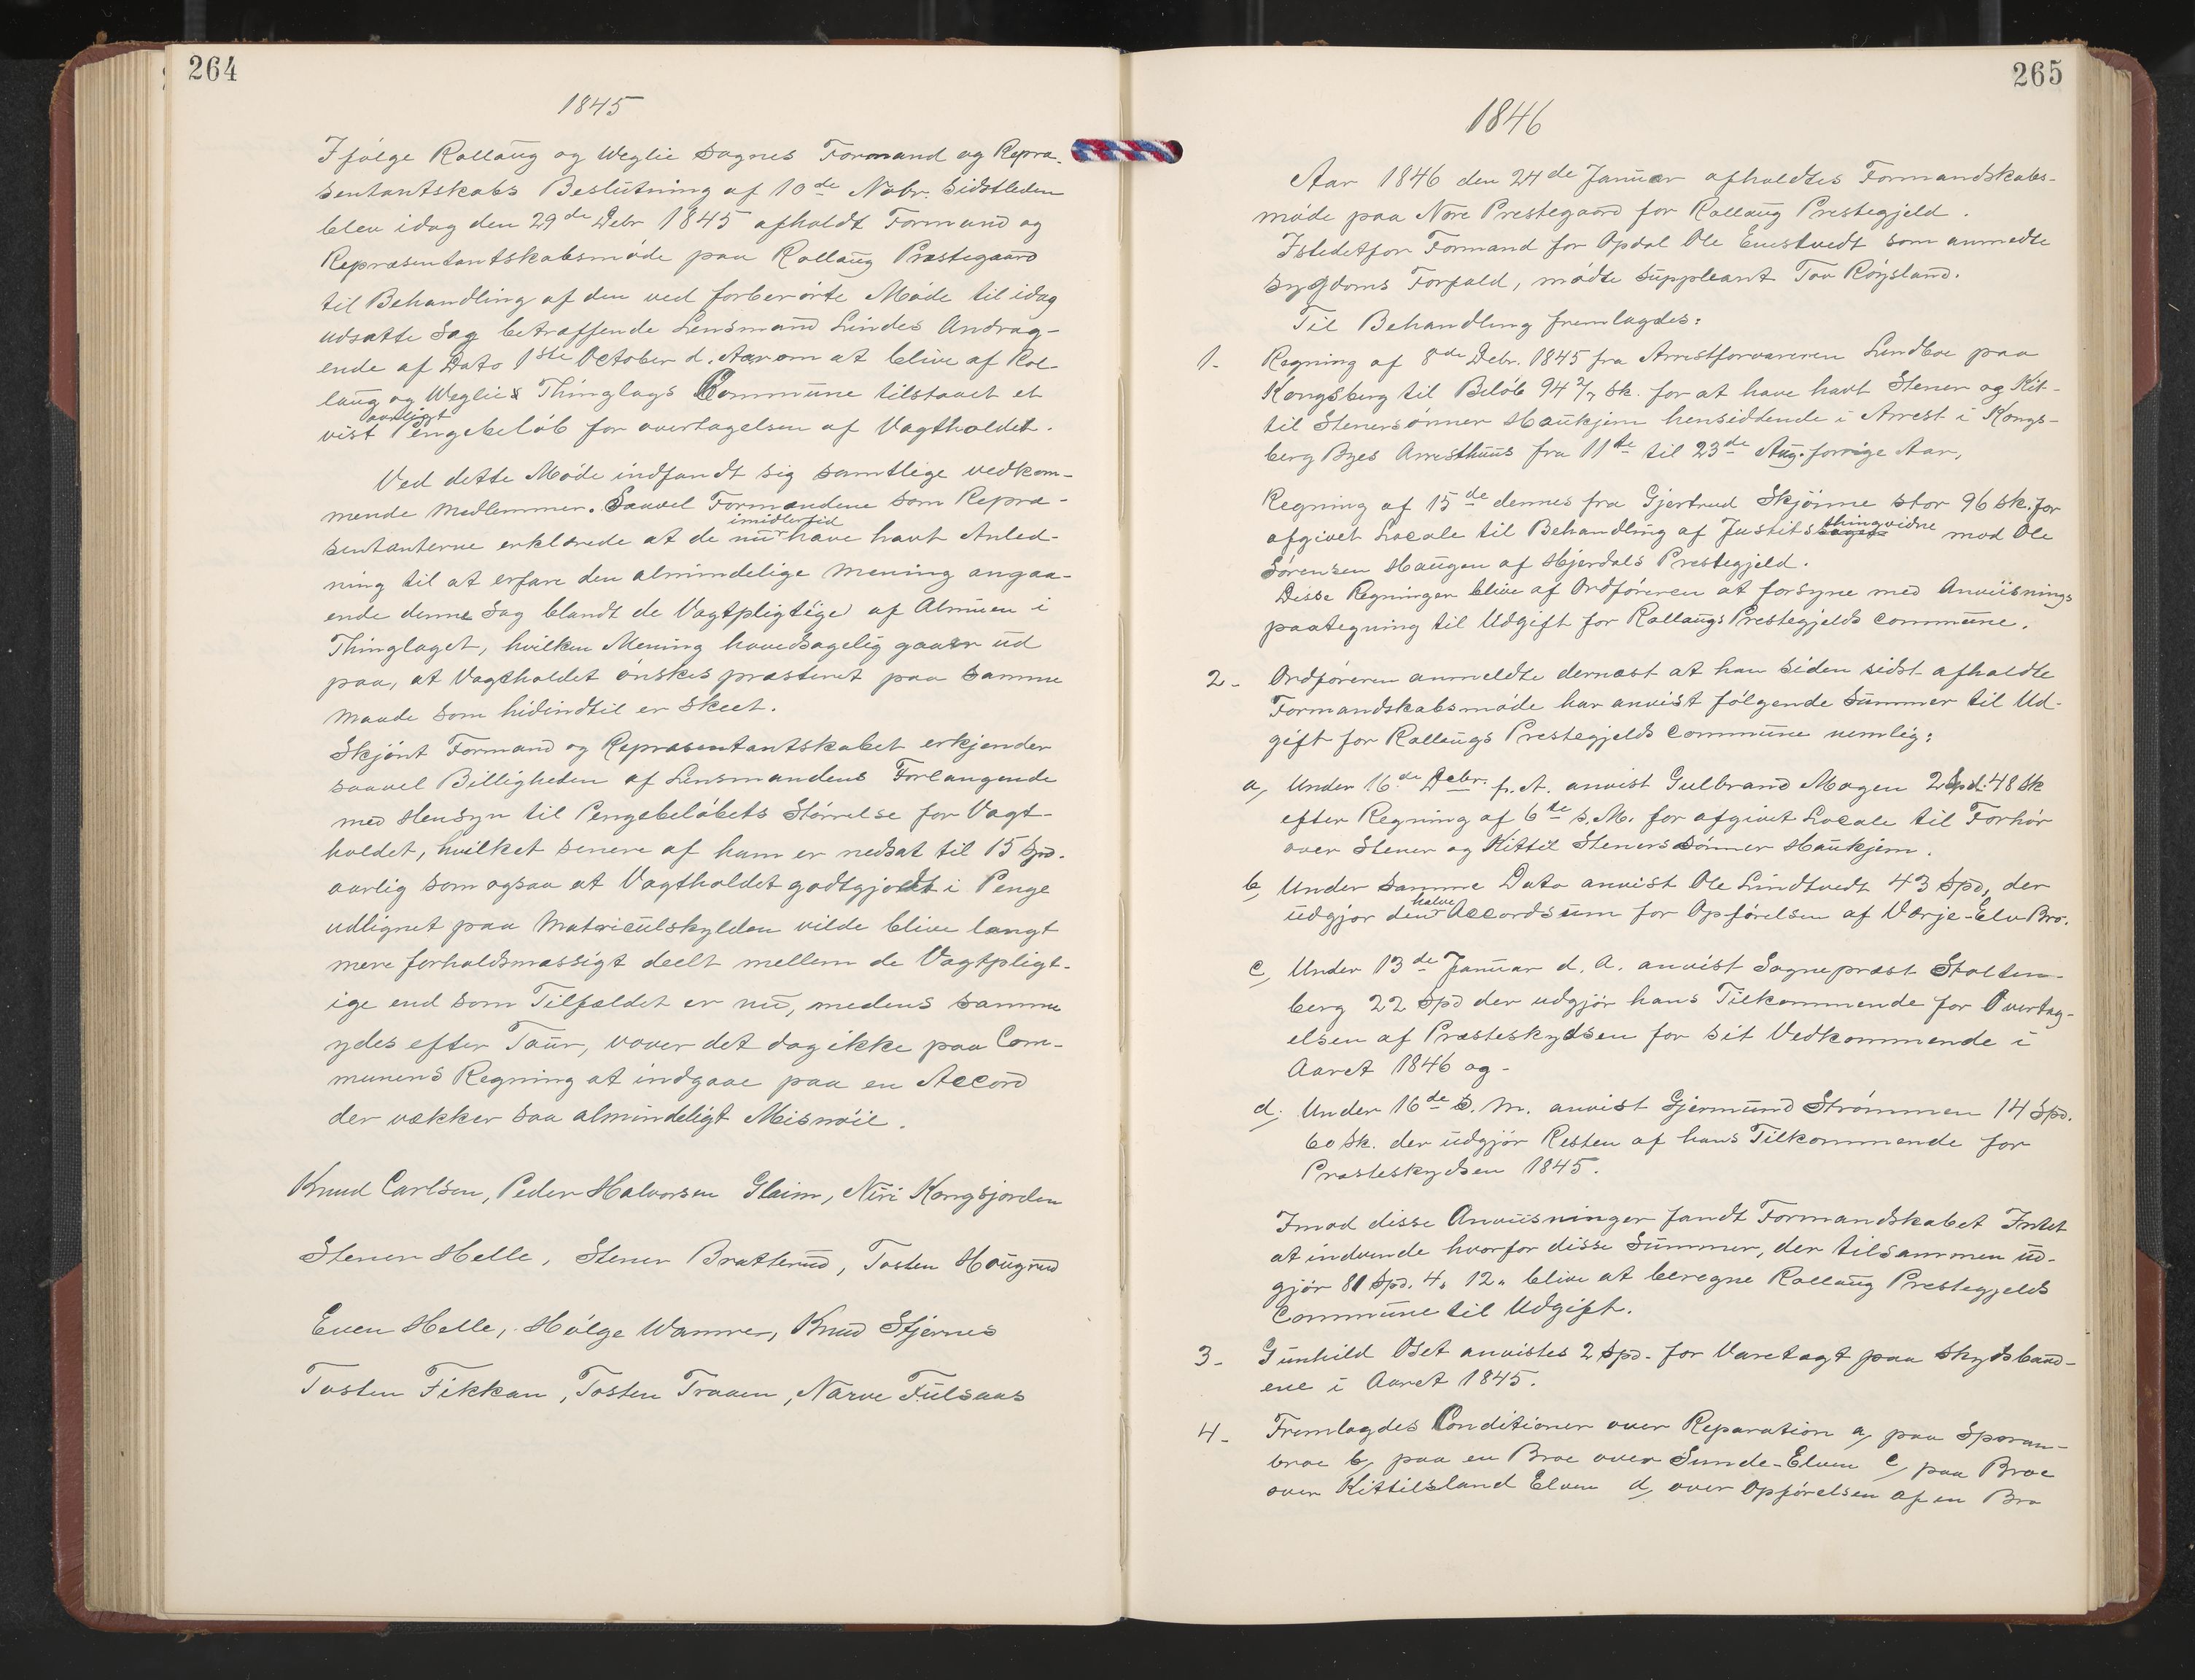 264
1845
Ifølge Rollaug og Weglie Sognes Formand og Repræ-
sentantskabs Beslutning af 10de Nobr. sidstleden
blev idag den 29de Debr 1845 afholdt Formand og
Repræsentantskabsmøde paa Rollaug Præstegaard
til Behandling af den ved forberørte Møde til idag
udsatte Sag betræffende Lensmand Lindes Andrag-
ende af Dato 1ste October d. Aar om at blive af Rol-
laug og Weglie Thinglags Commune tilstaaet et
aarligt
vist Pengebeløb for overtagelsen af Vagtholdet.
Ved dette Møde indfandt sig samtlige vedkom-
mende Medlemmer. Saavel Formændene som Repræ-
imidlertid
sentanterne erklærede at de nu have havt Anled-
ning til at erfare den almindelige Mening angaa-
ende denne Sag blandt de Vagtpligtige af Almuen i
Thinglaget, hvilken Mening hovedsagelig gaaer ud
paa, at Vagtholdet ønskes præsteret paa samme
Maade som hidindtil er skeet.
Skjønt Formand og Repræsentantskabet erkjender
saavel Billigheden af Lensmandens Forlangende
med Hensyn til Pengebeløbets Størrelse for Vagt-
holdet, hvilket senere af ham er nedsat til 15 Spd.
aarlig som ogsaa at Vagtholdet godtgjordt i Penge
udlignet paa Matriculskylden vilde blive langt
mere forholdsmæssigt deelt mellem de Vagtpligt-
ige end som Tilfældet er nu, medens samme
ydes efter Tour, vover det dog ikke paa Com-
munens Regning at indgaae paa en Accord
der vækker saa almindeligt Misnøie.
Knud Carlsen, Peder Halvorsen Glaim, Niri Kongsjorden
Stener Helle, Stener Bratterud, Tosten Hougrud
Even Helle, Hølge Wamre, Knud Stjernes
Tosten Fikkan, Tosten Traaen, Narve Fulsaas
265
1846
Aar 1846 den 24de Januar afholdtes Formandskabs-
møde paa Nore Prestegaard for Rollaug Prestegjeld.
Istedetfor Formand for Opdal Ole Enestvedt som anmedte
sygdoms Forfald, mødte Suppleant Tov Røysland.
Til Behandling fremlagdes:
1. Regning af 8de Debr. 1845 fra Arrestforvareren Lundboe paa
Kongsberg til Beløb 94 2/7 sk. for at have havt Stener og Kit-
til Stenersønner Haukjem hensiddende i Arrest i Kongs-
berg Byes Arresthuus fra 11te til 23de Aug. forrige Aar,
Regning af 15de dennes fra Gjertrud Skjønne stor 96 sk. for
thingvidne
afgivet Locale til Behandling af Justitssagen mod Ole
Sørensen Haugen af Hjerdals Prestegjeld.
Disse Regninger blive af Ordføreren at forsyne med Anviisnings
paategning til Udgift for Rollaugs Prestegjelds Commune.
2- Ordføreren anmeldte dernæst at han siden sidst afholdte
Formandskabsmøde har anvist følgende Summer til Ud-
gift for Rollaugs Prestegjelds Commune nemlig:
a, Under 16de Debr. f. A. anvist Gulbrand Mogen 2 Spd. 48 Sk
efter Regning af 6te s. M. for afgivet Locale til Forhør
over Stener og Kittil Stenerssønner Haukjem.
b, Under samme Dato anvist Ole Lindtvedt 43 Spd, der
halve
udgjør den Accordsum for Opførelsen af Værje-Elv Bro.
c, Under 13de Januar d. A. anvist Sognepræst Stolten-
berg 22 Spd der udgjør hans Tilkommende for Overtag-
elsen af Præsteskydsen for sit Vedkommende i
Aaret 1846 og-
d, Under 16de S. M. anvist Gjermund Strømmen 14 Spd.
60 Sk. der udgjør Resten af hans Tilkommende for
Præsteskydsen 1845.
Imod disse Anviisninger fandt Formandskabet Intet
at indvende hvorfor disse Summer, der tilsammen ud-
gjør 81 Spd. 4, 12, blive at beregne Rollaug Prestegjelds
Commune til Udgift.
3- Gunhild Oset anvistes 2 Spd. for Varetagt paa Skydsbaad-
ene i Aaret 1845.
4- Fremlagdes Conditioner over Reparation a, paa Sporan-
broe b, paa en Broe over Sunde-Elven c, paa Broe
over Kittilsland Elven d, over Opførelsen af en Bro